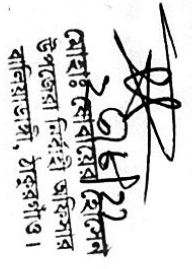 মোহাঃ সোবায়ের হোসেন
উপজেলা নির্বাহী অফিসার
বালিয়াডাঙ্গী, ঠাকুরগাঁও।